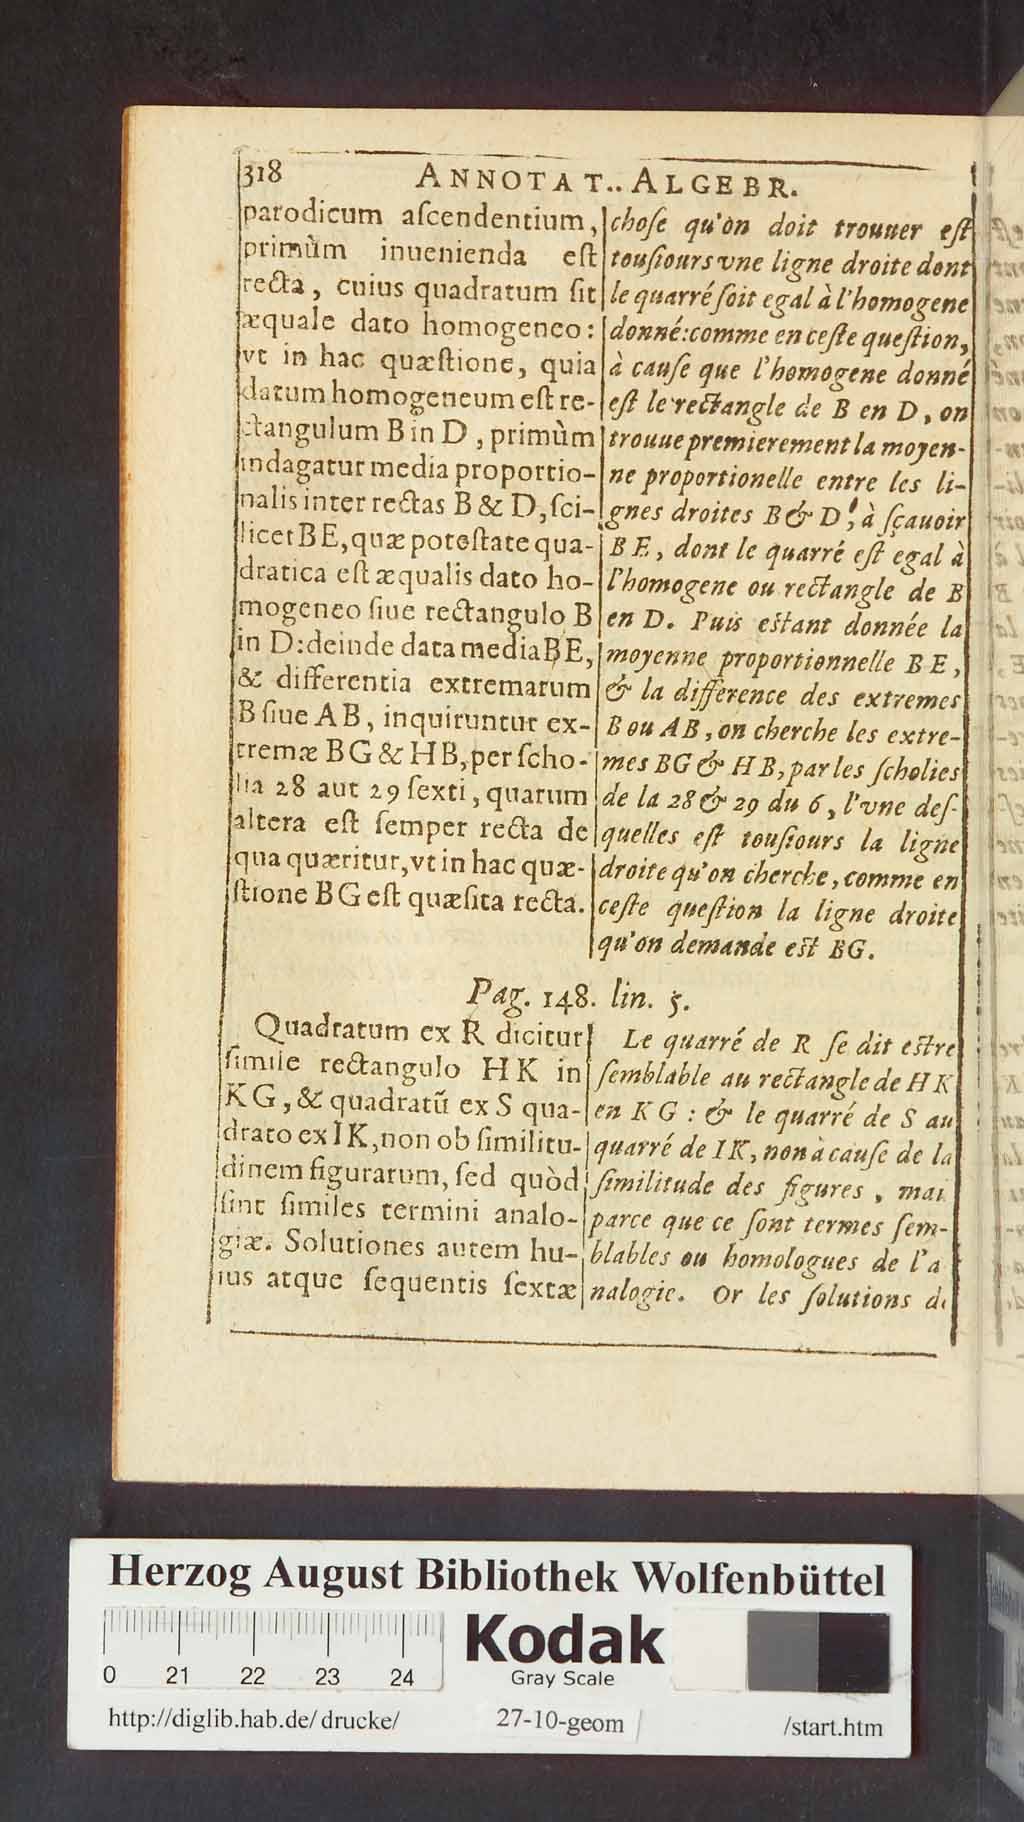 318 ANNOTAT.. ALGEBR.
parodicum aſcendentium,
primùm inuenienda eſt
recta, cuius quadratum ſit
æquale dato homogeneo:
vt in hac quæſtione, quia
datum homogeneum eſt re-
ctangulum B in D, primùm
indagatur media proportio-
nalis inter rectas B & D, ſci-
licet BE, quæ poteſtate qua-
dratica eſt æqualis dato ho-
mogeneo ſiue rectangulo B
in D: deinde data media BE,
& differentia extremarum
B ſiue AB, inquiruntur ex-
tremæ BG & HB, per ſcho-
lia 28 aut 29 ſexti, quarum
altera eſt ſemper recta de
qua quæritur, vt in hac quæ-
ſtione BG eſt quæſita recta.
choſe qu'on doit trouuer eſt
touſiours vne ligne droite dont
le quarré ſoit egal à l'homogene
donné: comme en ceſte queſtion,
à cauſe que l'homogene donné
eſt le rectangle de B en D, on
trouue premierement la moyen-
ne proportionelle entre les li-
gnes droites B & D, à ſçauoir
BE, dont le quarré eſt egal à
l'homogene ou rectangle de B
en D. Puis eſtant donnée la
moyenne proportionnelle BE,
& la difference des extremes
B ou AB, on cherche les extre-
mes BG & HB, par les ſcholies
de la 28 & 29 du 6, l'vne deſ-
quelles eſt touſiours la ligne
droite qu'on cherche, comme en
ceſte queſtion la ligne droite
qu'on demande eſt BG.
Pag. 148. lin. 5.
Quadratum ex R dicitur
ſimile rectangulo HK in
KG, & quadratũ ex S qua-
drato ex IK, non ob ſimilitu-
dinem figurarum, ſed quòd
ſint ſimiles termini analo-
giæ. Solutiones autem hu-
ius atque ſequentis ſextæ
Le quarré de R ſe dit eſtre
ſemblable au rectangle de HK
en KG: & le quarré de S au
quarré de IK, non à cauſe de la
ſimilitude des figures, mai
parce que ce ſont termes ſem-
blables ou homologues de l'a
nalogie. Or les ſolutions de
Herzog August Bibliothek Wolfenbüttel
0 21 22 23 24
Kodak
Gray Scale
http://diglib.hab.de/drucke/ 27-10-geom /start.htm